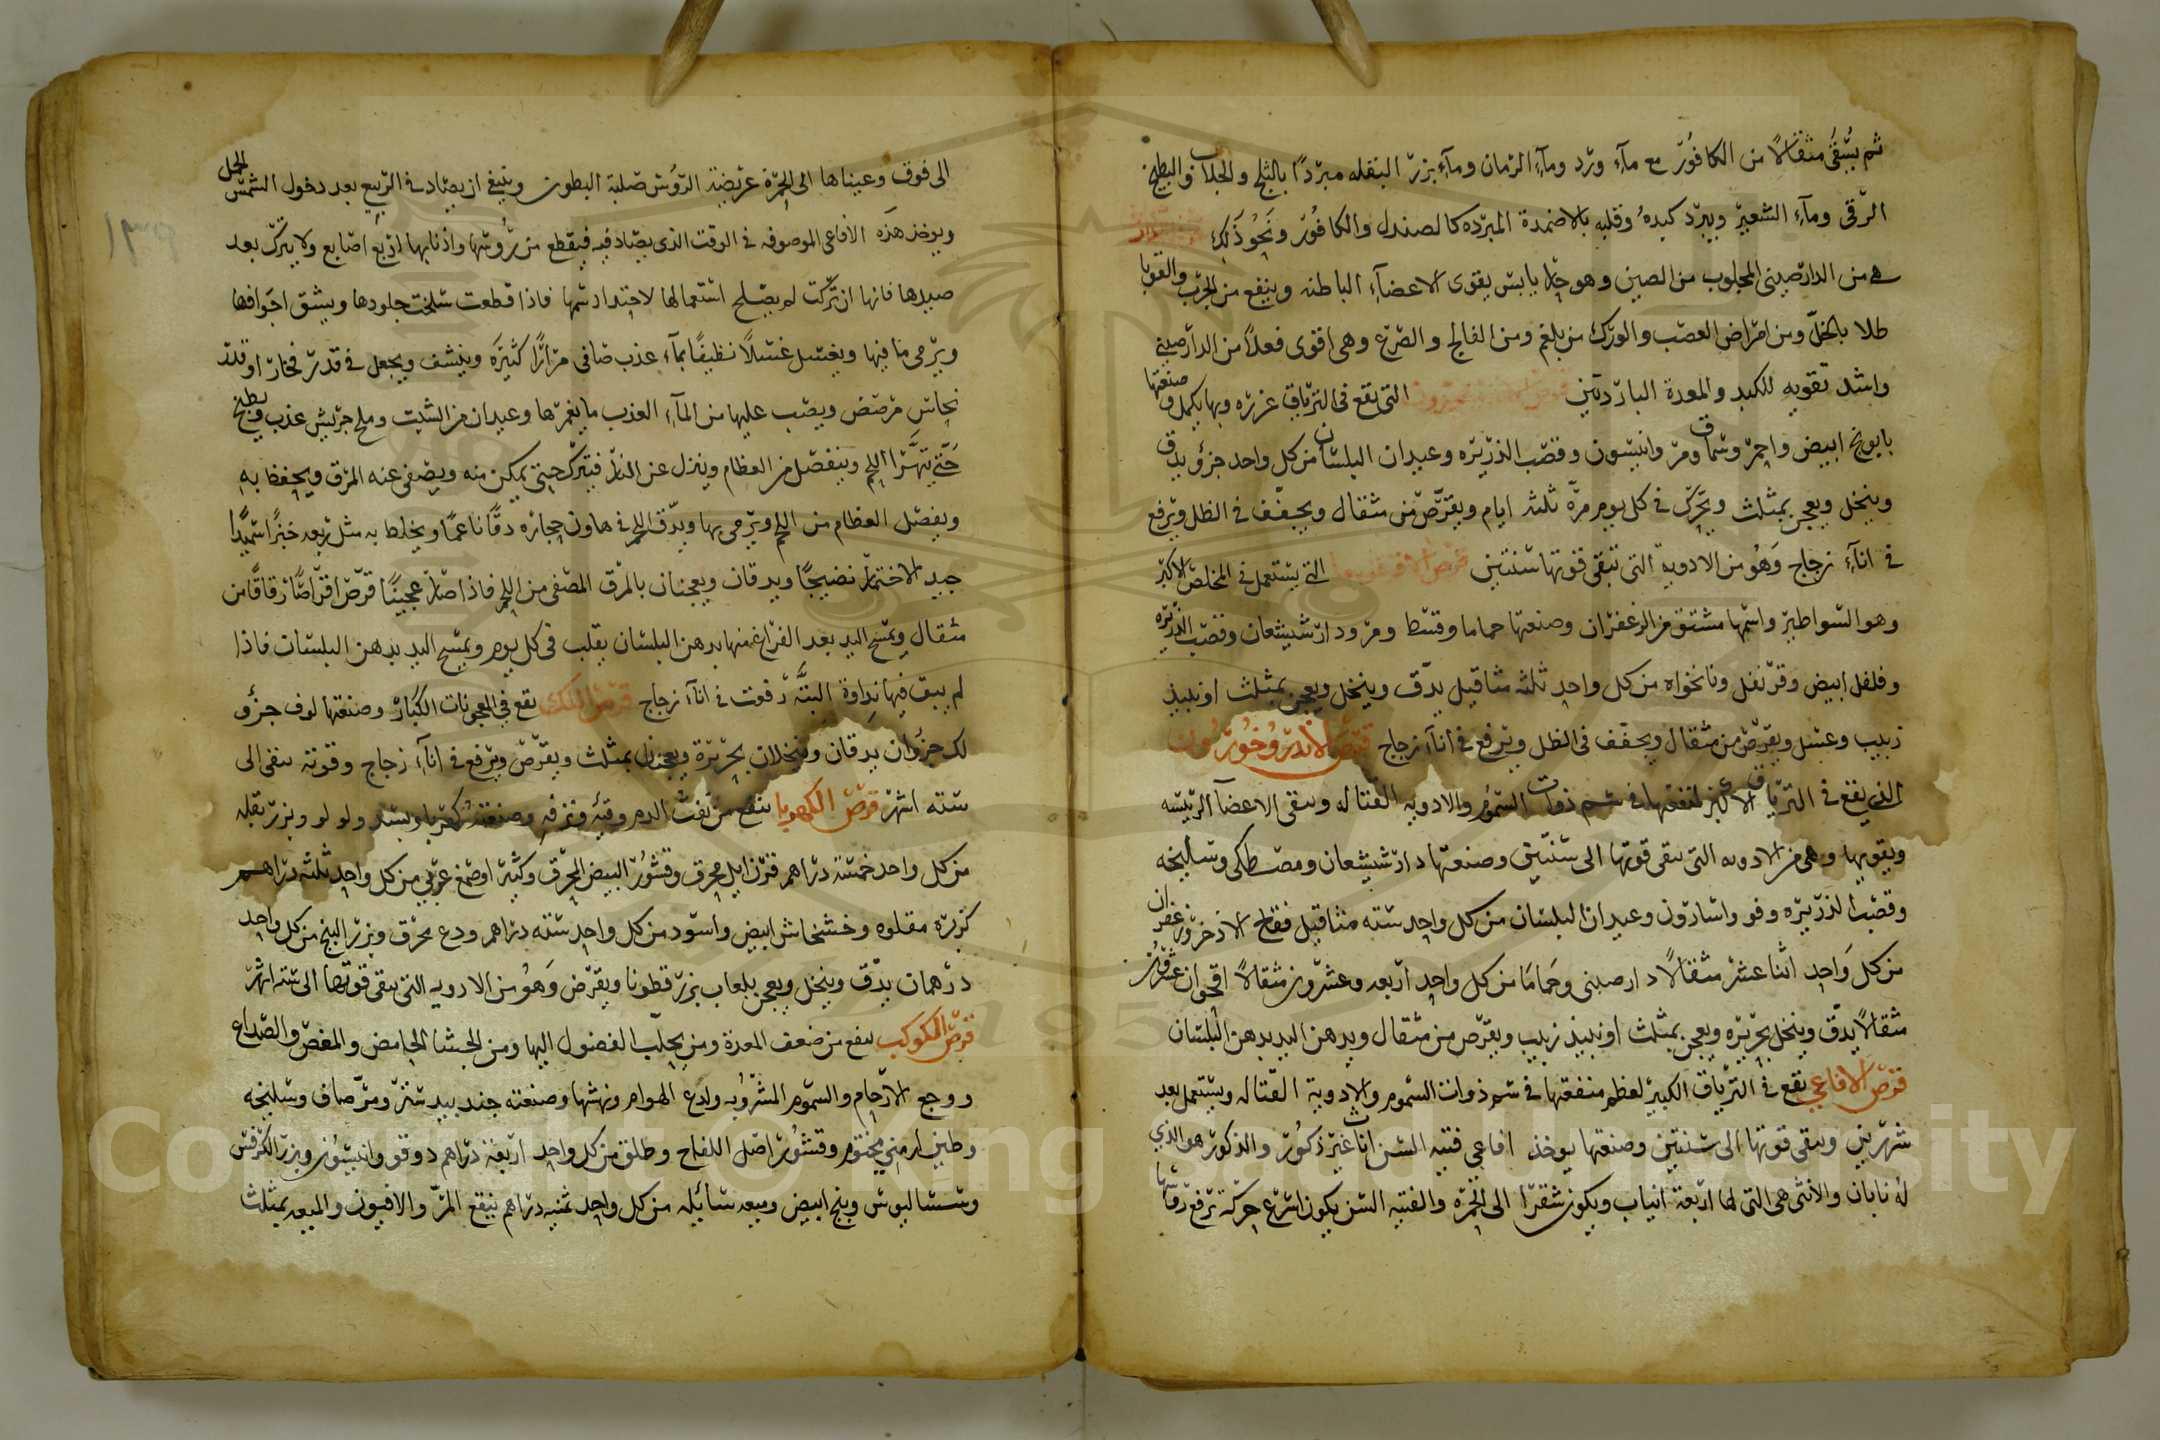 ثم يسقى مثقالا من الكافور مع ماء ورد وماء الرمان وماء بزر البقله مبردا بالثلج والجلاب والبطيخ
الرقى وماء الشعير ويبرد كبده وقلبه بالاضمدة المبرده كالصندل والكافور ونحو ذلك
هى من الدارصينى المجلوب من الصين وهو حار يابس يقوى الاعضاء الباطنه وينفع من الجرب والقوبا
طلا بالخل ومن امراض العصب والورك من بلغم ومن الفالج والصرع وهى اقوى فعلا من الدارصينى
واشد تقويه للكبد والمعدة الباردتين التى تقع فى الترياق عزره وبها يكمل وصنعتها
بابونج ابيض واحمر وسماق ومر وانيسون وقصب الذريره وعيدان البلسان من كل واحد جزؤ يدق
وينخل ويعجن بمثلث ويحرك فى كل يوم مرة ثلثه ايام ويقرص من مثقال ويجفف فى الظل ويرفع
فى اناء زجاج وهو من الادوية التى تبقى قوتها سنتين قرص التى يستعمل فى المخلص الاكبر
وهو السواطير واسمها مشتق من الزعفران وصنعتها حماما وقسط ومر ودارشيشعان وقصب الذريره
وفلفل ابيض وقرنفل ونانخواه من كل واحد ثلثه مثاقيل يدق وينخل ويعجن بمثلث اونبيذ
زبيب وعسل ويقرص من مثقال ويجفف فى الظل ويرفع فى اناء زجاج قرص الاندروخورون
الذى يقع فى الترياق الاكبر لمنفعتها فى سم ذوات السموم والادويه القتاله وينقى الاعضآ الرئيسه
ويقويها وهى من الادويه التى تبقى قوتها الى سنتين وصنعتها دارشيشعان ومصطكى وسليخه
وقصب الذريره وفو واسارون وعيدان البلسان من كل واحد سته مثاقيل فقاح الاذخر وزعفران
من كل واحد اثنا عشر مثقالا دارصينى وحماما من كل واحد اربعه وعشرون مثقالا اقحوان عشرون
مثقالا يدق وينخل بحريره ويعجن بمثلث اونبيذ زبيب ويقرص من مثقال ويدهن اليد بدهن البلسان
قرص الافاعي يقع فى الترياق الكبير لعظم منفعتها فى سم ذوات السموم والادوية القتاله ويستعمل بعد
شهرين ويبقى قوتها الى سنتين وصنعتها يوخذ افاعى فتيه السن اناث غير ذكور والذكور هو الذي
له نابان والانثى هى التى لها اربعة انياب ويكون شقرا الى الخمرة والفتيه السن يكون اسرع حركة ترفع رؤسها
الى فوق وعيناها الى الحمرة عريضة الرؤس صلبة البطون وينبغى ان يصاد فى الربيع بعد دخول الشمس الحمل
ويوخذ هذه الافاعى الموصوفه فى الوقت الذى يصاد فيه فيقطع من رؤسها واذنابها اربع اصابع ولا يترك بعد
صيدها فانها ان تركت لم يصلح استعمالها لاحتداد سمها فاذا قطعت سلخت جلودها ويشق اجوافها
ويرمى ما فيها ويغسل غسلا نظيفا بماء عذب صافى مرارا كثيره وينشف ويجعل فى قدر فخار اوقدر
نحاس مرصص ويصب عليها من الماء العذب ما يغمرها وعيدان من الشبت وملح جريش عذب ويطبخ
حتى يتهرا اللحم وينفصل من العظام وينزل عن النار فيترك حتى يمكن منه ويصفى عنه المرق ويحتفظ به
ويفصل العظام من اللحم ويرمى بها ويدق اللحم فى هاون حجاره دقا ناعما ويخلط به مثل ربعه خبزا سميدا
جيد الاختمار نضيجا ويدقان ويعجنان بالمرق المصفى من اللحم فاذا صار عجينا قرص اقراصا رقاقا من
مثقال ويمسح اليد بعد الفراغ منها بدهن البلسان يقلب فى كل يوم ويمسح اليد بدهن البلسان فاذا
لم يبق فيها نداوة البته رفعت فى اناء زجاج قرص اللك يقع فى المعجونات الكبار وصنعتها لوف جزؤ
لك جزؤان يدقان وينخلان بحريرة ويعجنان بمثلث ويقرص ويرفع فى اناء زجاج وقوته تبقى الى
سته اشهر قرص الكهربا ينفع من نفث الدم وقيه ونزفه وصنعته كهربا وبسد ولولو وبزر بقله
من كل واحد خمسة دراهم قرن ايل محرق وقشور البيض المحرق وكثيرا وصمغ عربى من كل واحد ثلثه دراهم
كزبره مقلوه وخشخاش ابيض واسود من كل واحد سته دراهم ودع محرق وبزر البنج من كل واحد
درهمان يدق وينخل ويعجن بلعاب بزر قطونا ويقرص وهو من الادويه التى تبقى قوتها الى سته اشهر
قرص الكوكب ينفع من ضعف المعدة ومن يحلب الفضول اليها ومن الجشا الحامض والمغص والصداع
ووجع الارحام والسموم المشروبه ولدغ الهوام ونهشها وصنعته جندبيدستر ومر صاف وسليخه
وطين ارمنى مختوم وقشور اصل اللفاح وطلق من كل واحد اربعة دراهم دوقو وانيسون وبزر الكرفس
وسساليوس وبنج ابيض وميعه سائله من كل واحد ثمنيه دراهم ينقع المر والافيون والميعه بمثلث
١٣٩
Copyright © King Saud University
1957